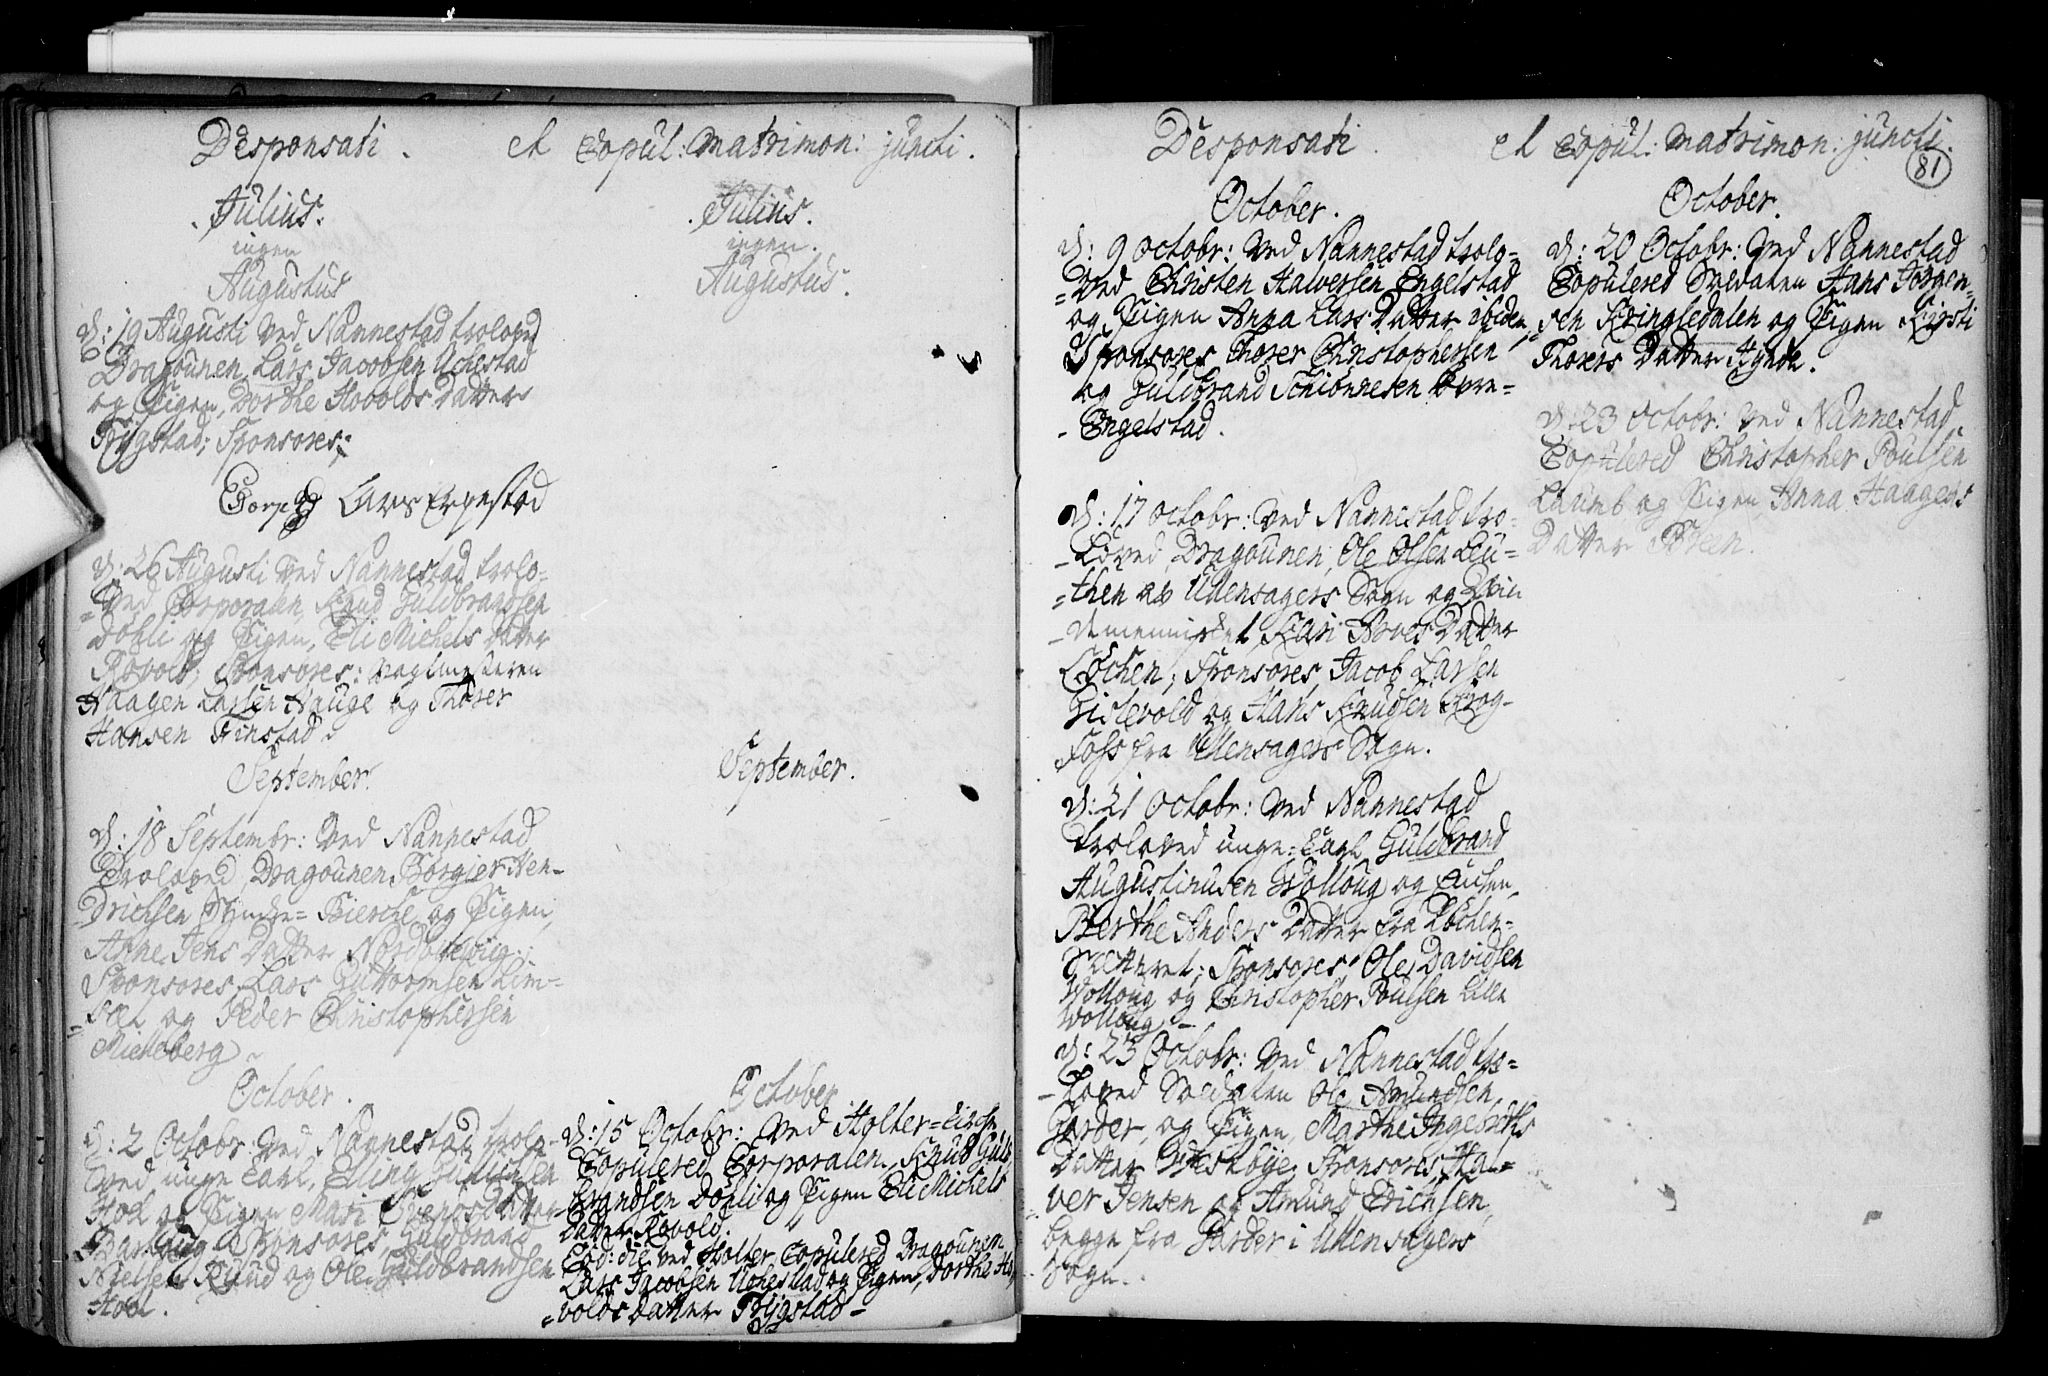 Desponsati.
et Copul: matrimon: juncti.
Julius.
ingen
Augustus
d: 19 Augusti ved Nannestad troloved
Dragounen Lars Jacobsen Uchestad
og Pigen, Dorthe Hovolds Datter
Trygstad; Sponsores;
Lars
d: 26 Augusti ved Nannestad trolo-
=ved Corporalen, Knud Guldbrandsen
Døhli og Pigen, Eli Michels Datter
Rovold; Sponsores: Vagtmesteren
Haagen Larsen Hauge og Thorer
Hansen Finstad
September.
d: 18 Septembr: ved Nannestad
Troloved Dragounen Børgier Hen-
drichsen Bierche og Pigen,
Anne Jens Datter
Sponsores Lars Guttormsen Lim-
=sæt og Peder Christophersen
Mickeberg
October.
d: 2 Octobr: ved Nannestad trolo-
=ved unge Carl, Elling
Hoel og Pigen Mari Datter
Sponsores Guldbrand
Nielsen Ruud og Ole Guldbrandsen
Hoel.
Julius.
ingen.
Augustus.
September.
October
d: 15 Octobr: ved Holter=Kirche
Copulered Corporalen, Knud Guld-
=brandsen Døhli og Pigen Eli Michels
Datter Rovold.
Eod: die ved Holter Copulered Dragounen
Lars Jacobsen Uchestad og Pigen, Dorthe Ho-
=volds Datter Trygstad
Desponsati.
et Copul: matrimon: juncti.
81
October.
d: 9 Octobr: ved Nannestad trolo-
=ved Christen Halversen Engelstad
og Pigen Anna Lars Datter ibidem,
Sponsores Thorer Christophersen
og Guldbrand
Engelstad.
d: 17 Octobr: ved Nannestad tro-
=loved Dragounen, Ole Olsen Leu-
=then af Ullensagers Sogn og Qvin
=demennisket Kari Datter
Løchen; Sponsores, Jacob Larsen
Gistevold og Hans Knudsen Krog-
foss fra Ullensagers Sogn.
d: 21 Octobr: ved Nannestad
troloved unge=Carl Guldbrand
Augustinusen Wolloug og Enchen
Berthe Anders Datter fra Løchen-
Sponsores Ole Davidsen
Wolloug og Christopher Poulsen Lille
Wolloug
d: 23 Octobr: ved Nannestad tro=
=loved Soldaten Ole Amundsen
Garder, og Pigen, Marthe Ingebreths
Datter Sponsores Hal=
ver Jensen og Amund Erichsen,
begge fra Garder i Ullensagers
Sogn.
October.
d: 20 Octobr: ved Nannestad
Copulered Soldaten Hans Jørgen-
sen Kringledalen og Pigen Kirsti
Thorers Datter Rynde.
d: 23 Octobr: ved Nannestad
Copulered Christopher Poulsen
Laumb og Pigen Anna Haagens
Datter Breen.